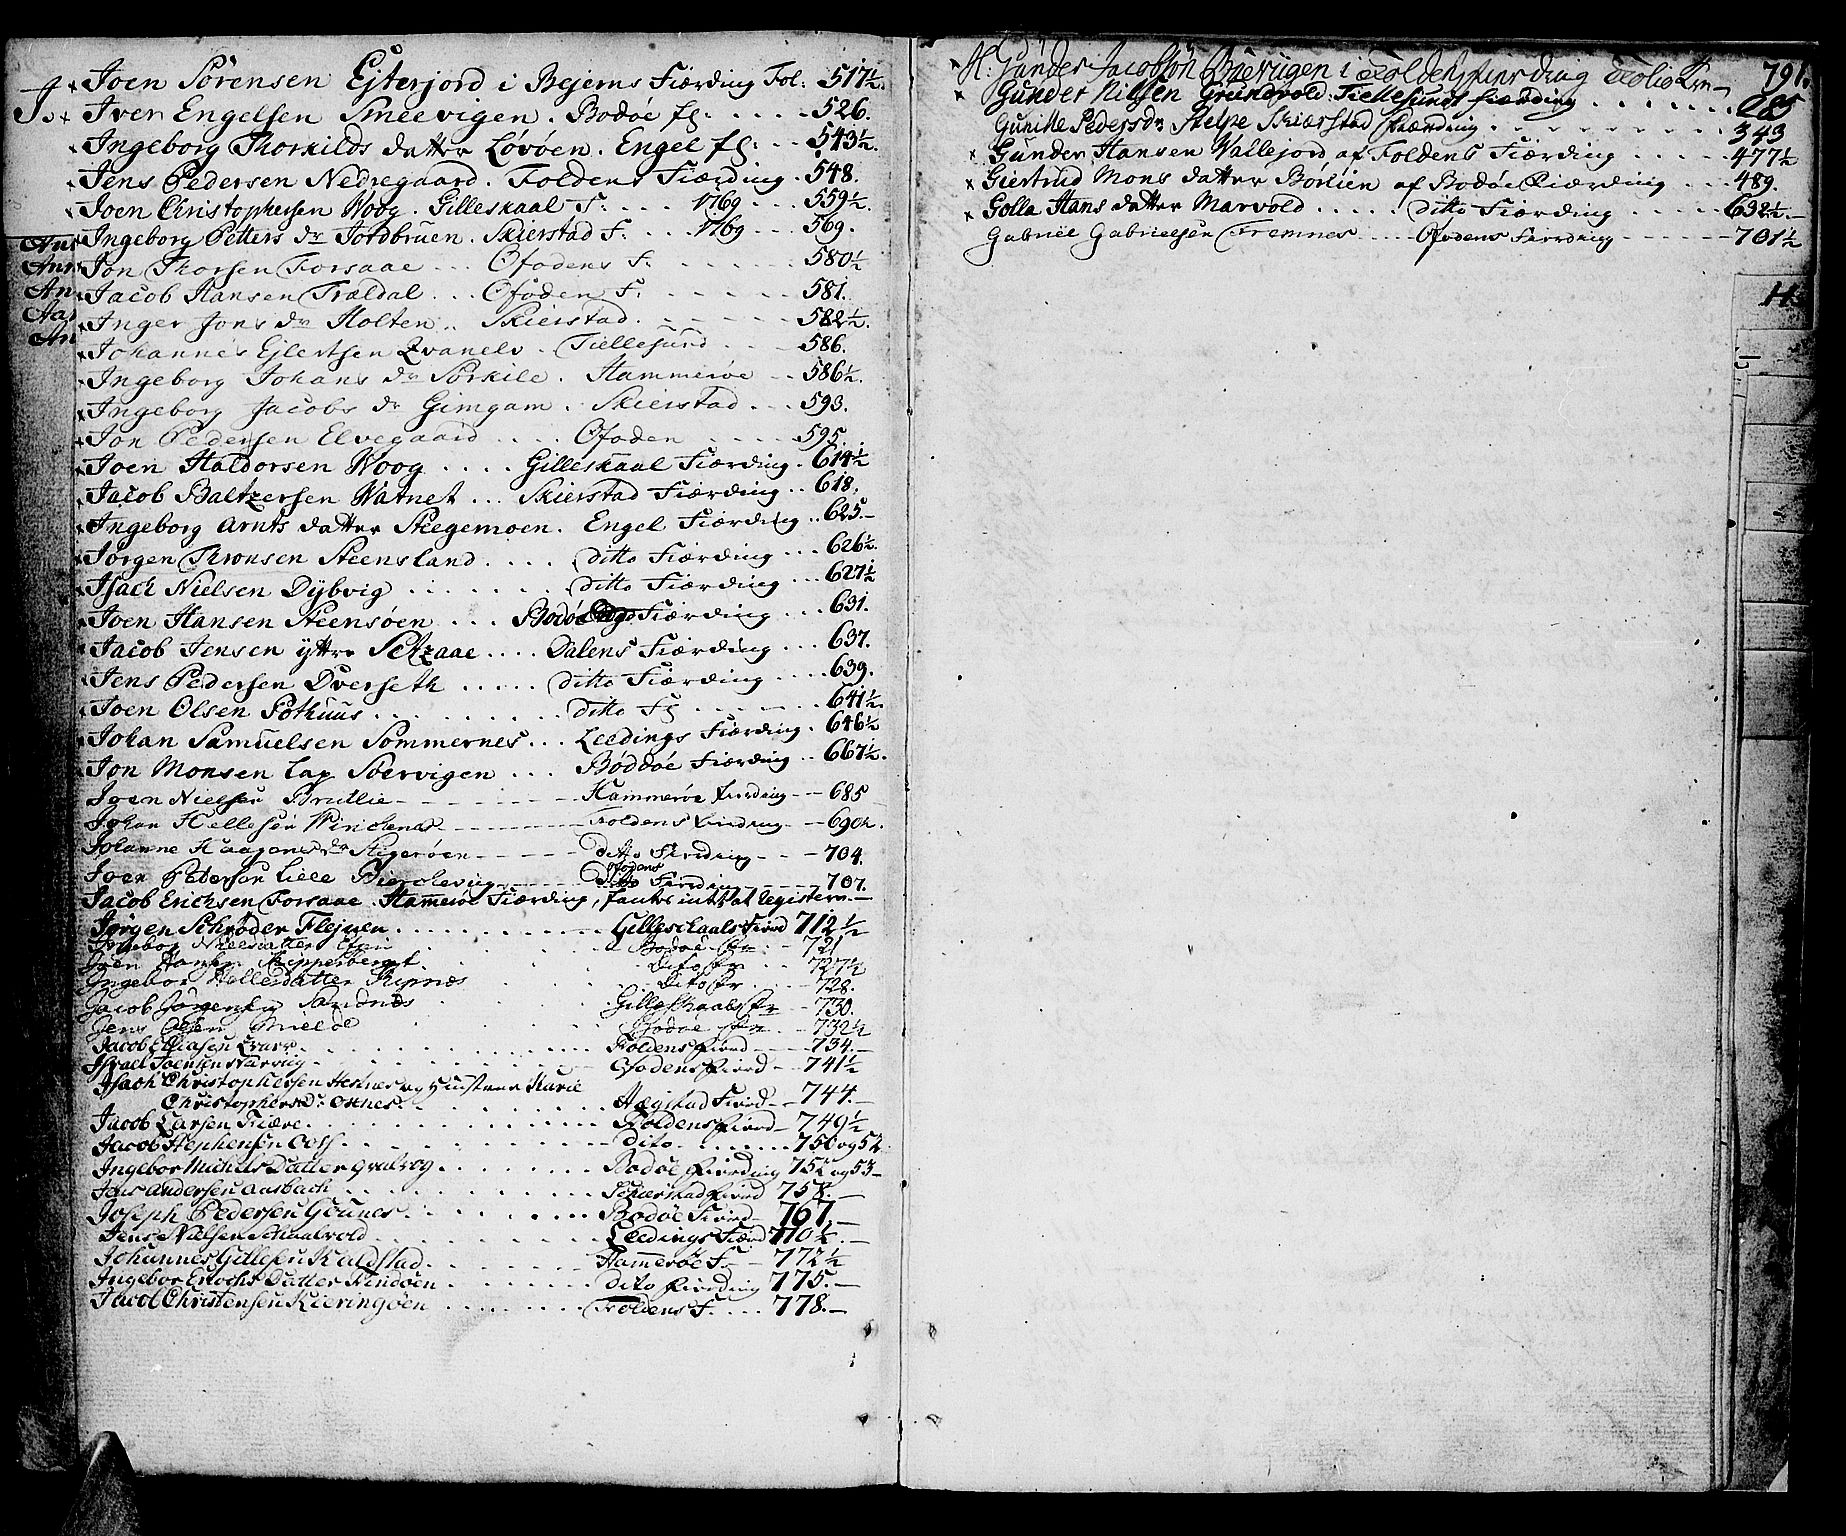 J.
Joen Sörensen Ejterjord i Bejerns Fiærding Fol: 517½.
Iver Engelsen Smeevigen. Bodöe fg: 526.
Ingeborg Thorkilds datter Lövöen. Engel fg: 543½.
Jens Pedersen Nedregaard. Foldens Fiærding. 548.
Joen Christophersen Woog. Gilleskaal F: 1769 559½.
Ingeborg Petters dr Jordbruen. Skierstad F. 1769 569.
Jon Thorsen Forsaae Ofodens F. 580½
Jacob Hansen Traldal Ofoden F. 581.
Inger Jons dr Holten Skierstad 582½.
Johannes Ejlertsen Tiellesund 586.
Ingeborg Johans dr Sörkile. Hammeröe 586½.
Ingeborg Jacobs dr Gimgam. Skierstad 593.
Jon Pedersen Elvegaard Ofoden 595.
Joen Haldorsen Woog Gilleskaal Fiærding. 614½
Jacob Baltzersen Watnet Skierstad Fiærding 618.
Ingeborg Arnts datter Steegemoen. Engel Fiærding 625.
Jörgen Thronsen Steensland ditto Fiærding 626½.
Isach Nielsen Dybvig ditto Fiærding 627½
Joen Hansen Steensöen Bodöe Fiærding 631.
Jacob Jensen yttre Setzaae Dalens Fiærding 637.
Jens Pedersen Overseth ditto Fiærding 639.
Joen Olsen Pothuus ditto Fg 641½.
Johan Samuelsen Sommernes Leedings Fiærding 646½
Jon Monsen Lap Soervigen Böddöe Fiærding 667½.
Joen Nielsen Brudlie Hammeröe Fierding 685
Johan Hellesen Foldens Fierding 690½.
Johanne Haagens dr Stigeröen ditto Fierding 704.
Joen Petersen Lille Ofodens Fierding 707.
Jacob Erichsen Forsaae Hameröe Fiærding, fantes intet at Registere
Jörgen Schröder Flejnen Gilleschaals Fierd 712½
Ingebor Nielsdatter Bodöe fr 721
Joen Hansen Skipperberget Dito fr 727½
Ingebor Hellesdatter Ripnæs Dito fr 728.
Jacob Jörgensen Sandnæs Gilleskaals fr 730.
Jens Olsen Mielde Bodöe fr 732½
Jacob Eliasen Foldens Fierd 734.
Israel Joensen Narvig Ofodens Fierd 741½
Isach Christophersen Hesnes og Hustrue Karie
Christophersdr Oxnes Hægstad Fierd 744.
Jacob Larsen Fiære Foldens Fierd 749½
Jacob Stephensen Dito 750 og 52
Ingebor Michels Datter Bodöe Fierding 752 og 53
Jens Andersen Aasbach Schierstad Fierd 758.
Joseph Pedersen Godnes Bodöe Fierd 767.
Jens Nielsen Schaalvold Leedings Fierd 770½.
Johannes Gillesen Kaldstad Hammeröe F. 772½
Ingebor Enochs Datter Finnöen Dito Fierding 775.
Jacob Christensen Kieringöen Foldens F. 778.
H: Gunder Jacobsön i Foldens fierding Folio 791.
Gunder Nilsen Grundvold. Tiellesunds fiærding 285
Gunille Pedersdr Skierstad fiærding 343
Gunder Hansen Vallejord af Foldens Fiærding 477½
Giertrud Mons datter Börlien af Bodöe Fiærding 489.
Golla Hans datter Marvold ditto Fiærding 632½.
Gabriel Gabrielsen Fremnes Ofodens Fierding 701½